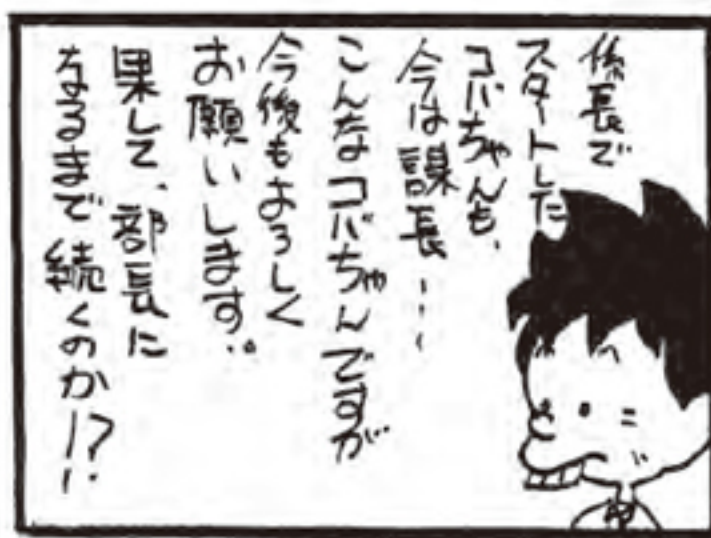 係長で
スタートした
コバちゃんも、
今は課長…
こんなコバちゃんですが
今後もよろしく
お願いします。
果して、部長に
なるまで続くのか!?